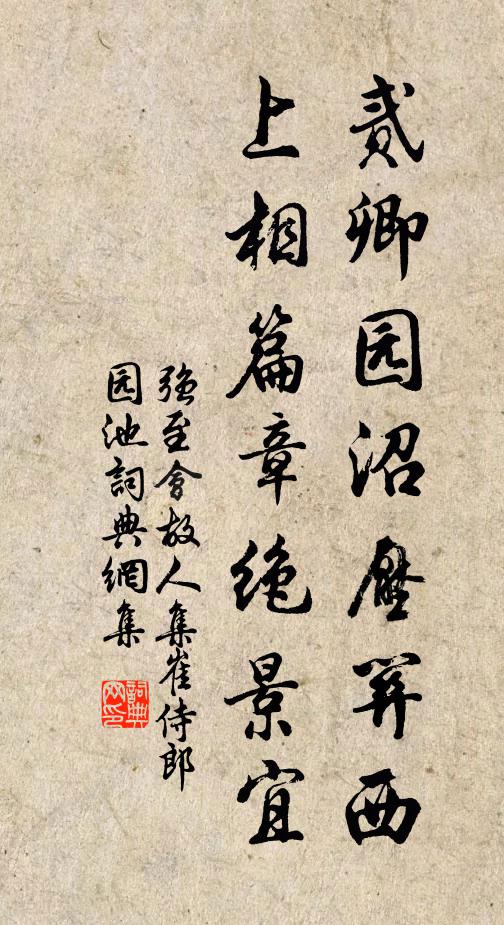 贰卿园沼压并西
上相篇章绝景宜
强至會故人集崔侍郎
园池詞典網集
詞典网印